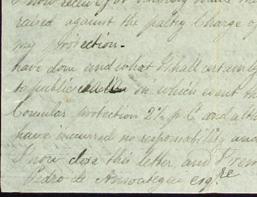 raised against the paltry Charge of
my Protection.
have done and what I shall certainly
to public on which went the
Consular protection 2½ p C and alth
have incurred no responsibility and
I now close this letter and I rem
Pedro de esqre